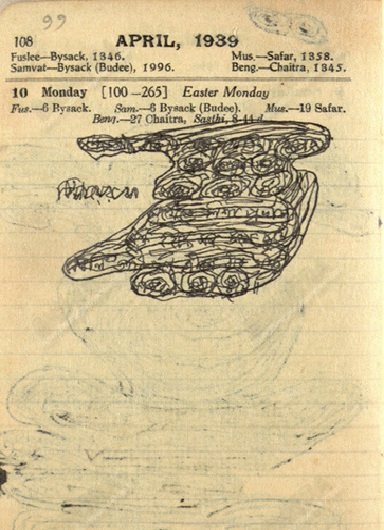 99
108 APRIL, 1939
Fuslee—Bysack, 1346. Mus.—Safar, 1358.
Samvat—Bysack (Budee), 1996. Beng.—Chaitra, 1345.
10 Monday [100—265] Easter Monday
Fus.—6 Bysack. Sam.—6 Bysack (Budee). Mus.—19 Safar.
Beng.—27 Chaitra, Sasthi,